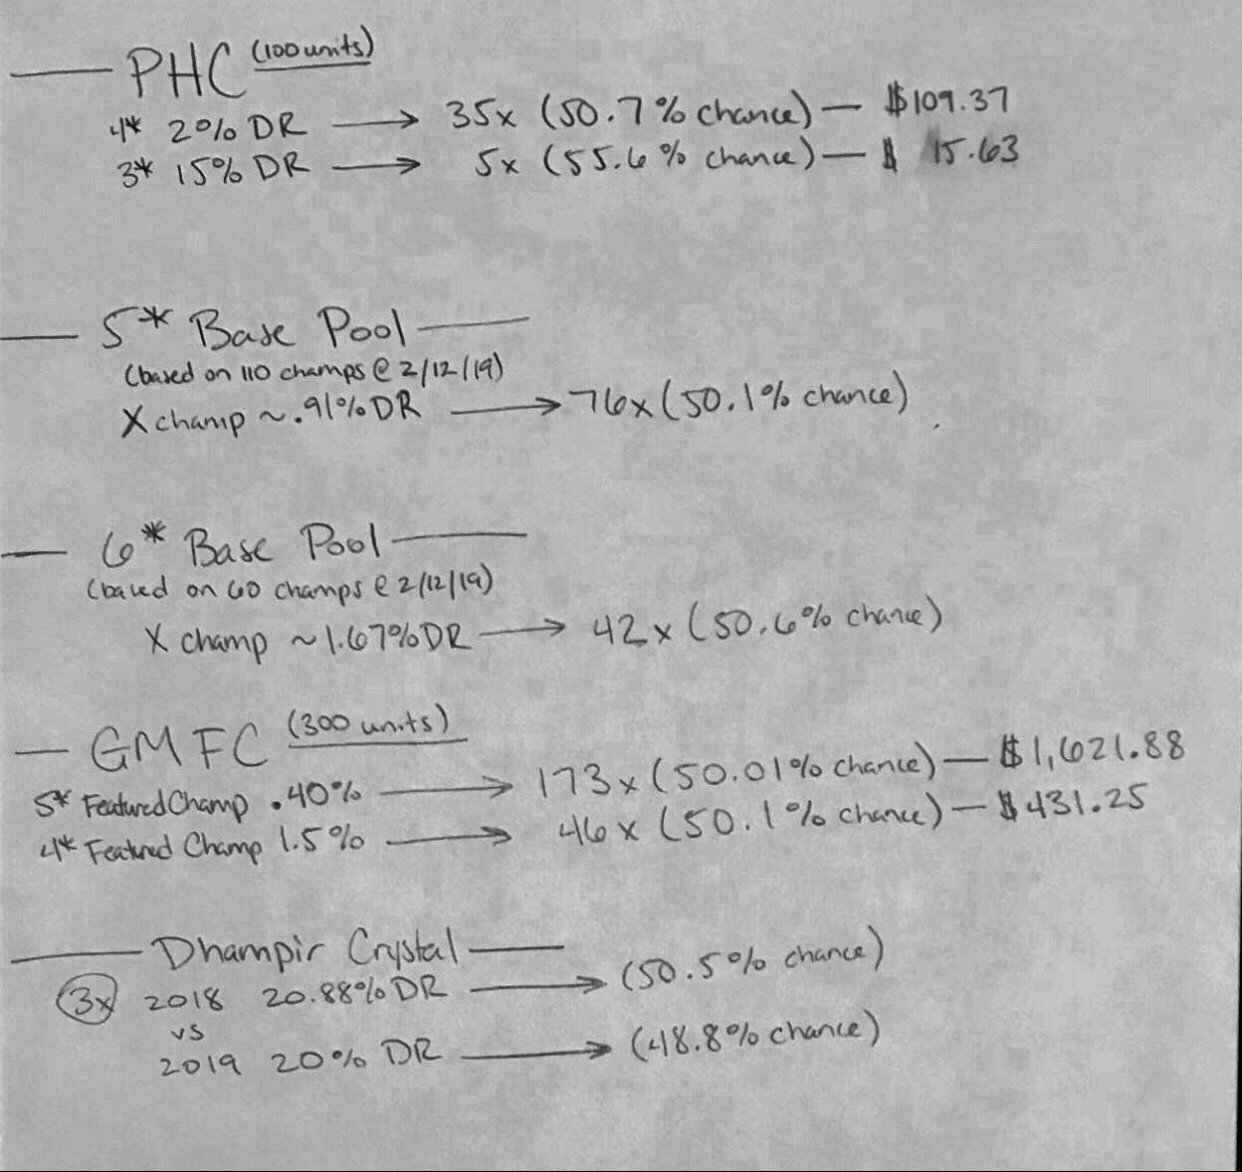 PHC (100 units)
4* 2% DR → 35x (50.7% chance) — $109.37
3* 15% DR → 5x (55.6% chance) — $ 15.63
5* Base Pool
(based on 110 champs @ 2/12/19)
X champ ~.91% DR → 76x (50.1% chance)
6* Base Pool
(based on 60 champs @ 2/12/19)
X champ ~1.67% DR → 42x (50.6% chance)
GMFC (300 units)
5* Featured Champ .40% → 173x (50.01% chance) — $1,621.88
4* Featured Champ 1.5% → 46x (50.1% chance) — $431.25
Dhampir Crystal
3x 2018 20.88% DR → (50.5% chance)
vs
2019 20% DR → (48.8% chance)